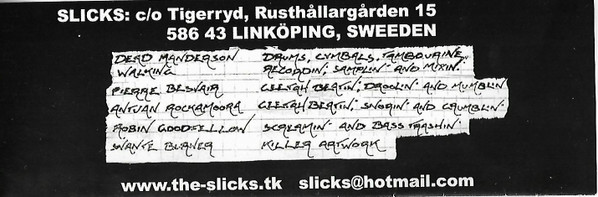 SLICKS: c/o Tigerryd, Rusthållargården 15
586 43 LINKÖPING, SWEEDEN
DERD MANDERSON DRUMS, CYMBALS, TAMBOURINE
WALMING RECORDIN', SAMPLIN' AND MIXIN'
PIERRE BESVAIR GEETAH BEATIN', DROOLIN' AND MUMBLIN'
ANTUAN ROCKAMOORA GEETAH BEATIN', SNORIN' AND CRUMBLIN'
ROBIN GOODFELLOW SCREAMIN' AND BASS TRASHIN'
SVANTE BURNER KILLER ARTWORK
www.the-slicks.tk slicks@hotmail.com